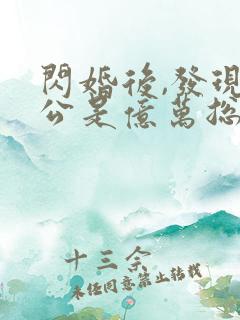 閃婚後,發現
公是億萬總
十三余
未經同意禁止轉載